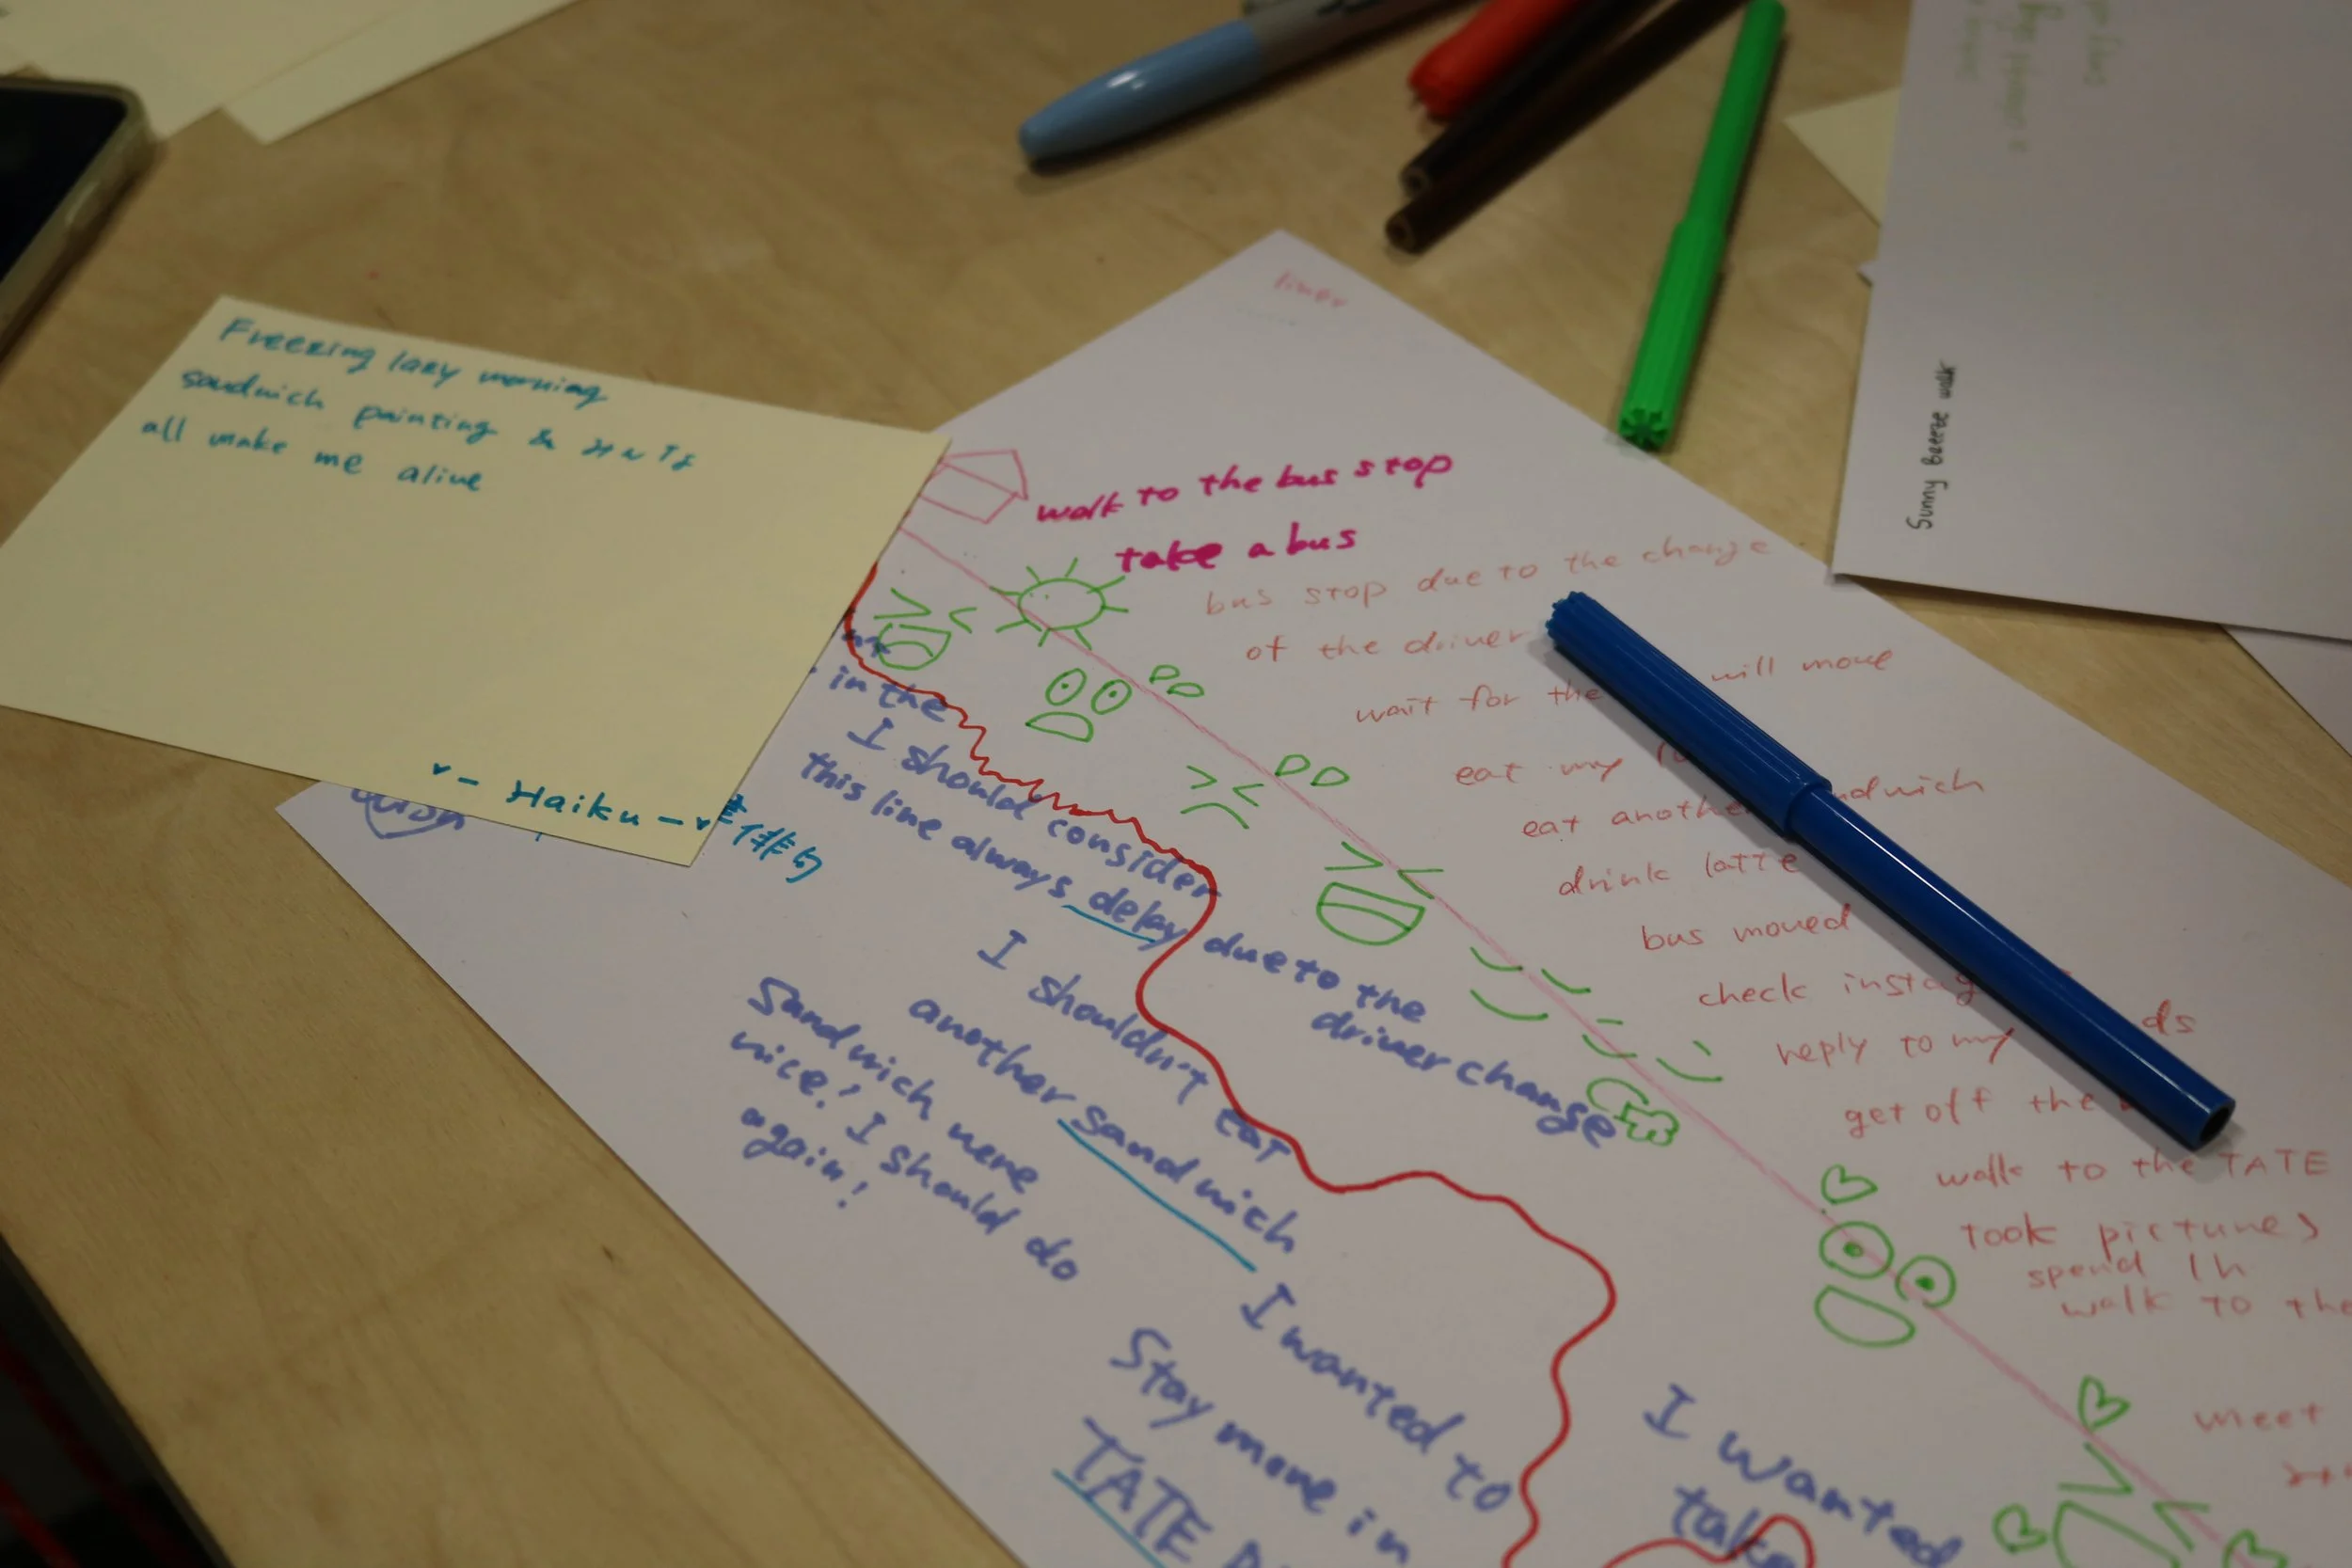 Freezing lazy morning
sandwich painting &
all make me alive
- Haiku -
liner
walk to the bus stop
take a bus
bus stop due to the change
of the driver
wait for the will move
eat my
eat another sandwich
drink latte
bus moved
check
reply to my
get off the
walk to the TATE
took pictures
spend 1h
walk to the
meet
in the
I should consider
this line always delay due to the
driver change
I shouldn't eat
another sandwich
Sandwich were
nice! I should do
again!
I wanted to
Stay more in
TATE
I wanted
take
Sunny Breeze walk